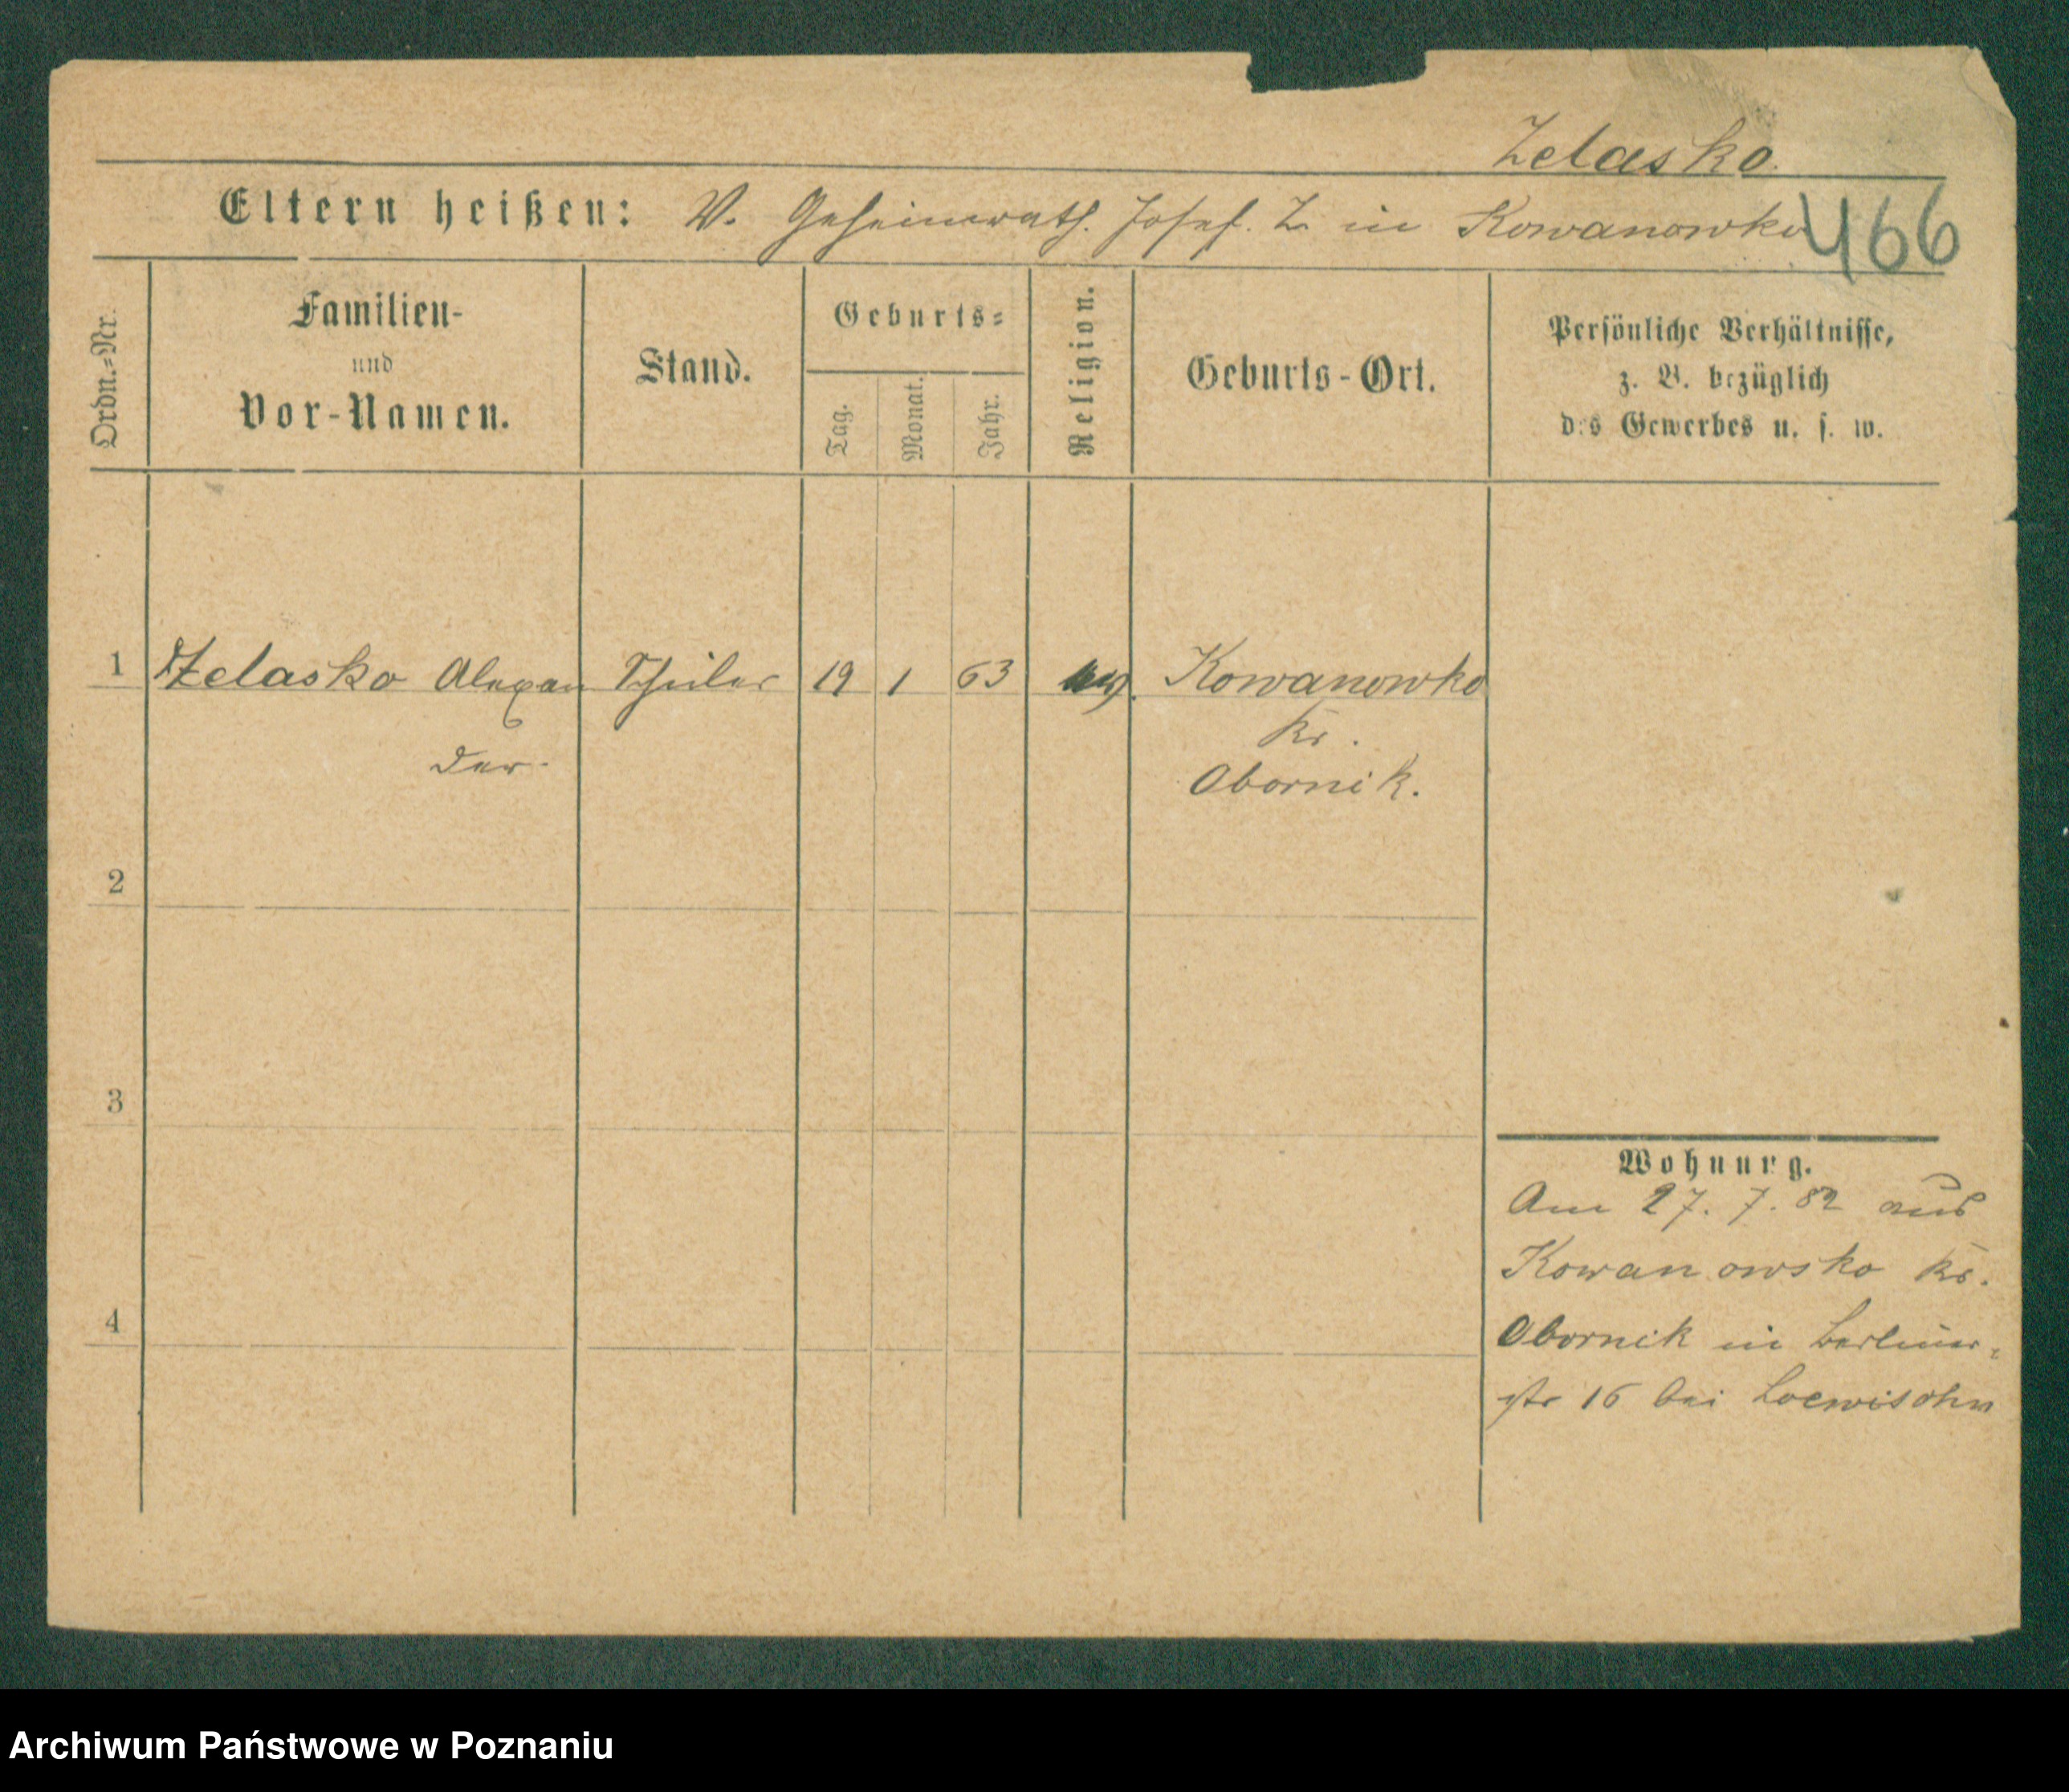 Zelasko.
Eltern heißen: V. Geheimrath. Josef. Z. in Kowanowko
466
Ordn.=Nr.
Familien-
und
Vor-Namen.
Stand.
Geburts=
Tag.
Monat.
Jahr.
Religion.
Geburts-Ort.
Persönliche Verhältnisse,
z. B. bezüglich
des Gewerbes u. s. w.
1 Zelasko Alexan 19 1 63 Kowanowko
der. Kr.
Obornik.
2
3
4
Wohnung.
Am 27. 7. 82 aus
Kowanowsko Kr.
Obornik in Berliner=
str 16 bei Loewisohn
Archiwum Państwowe w Poznaniu